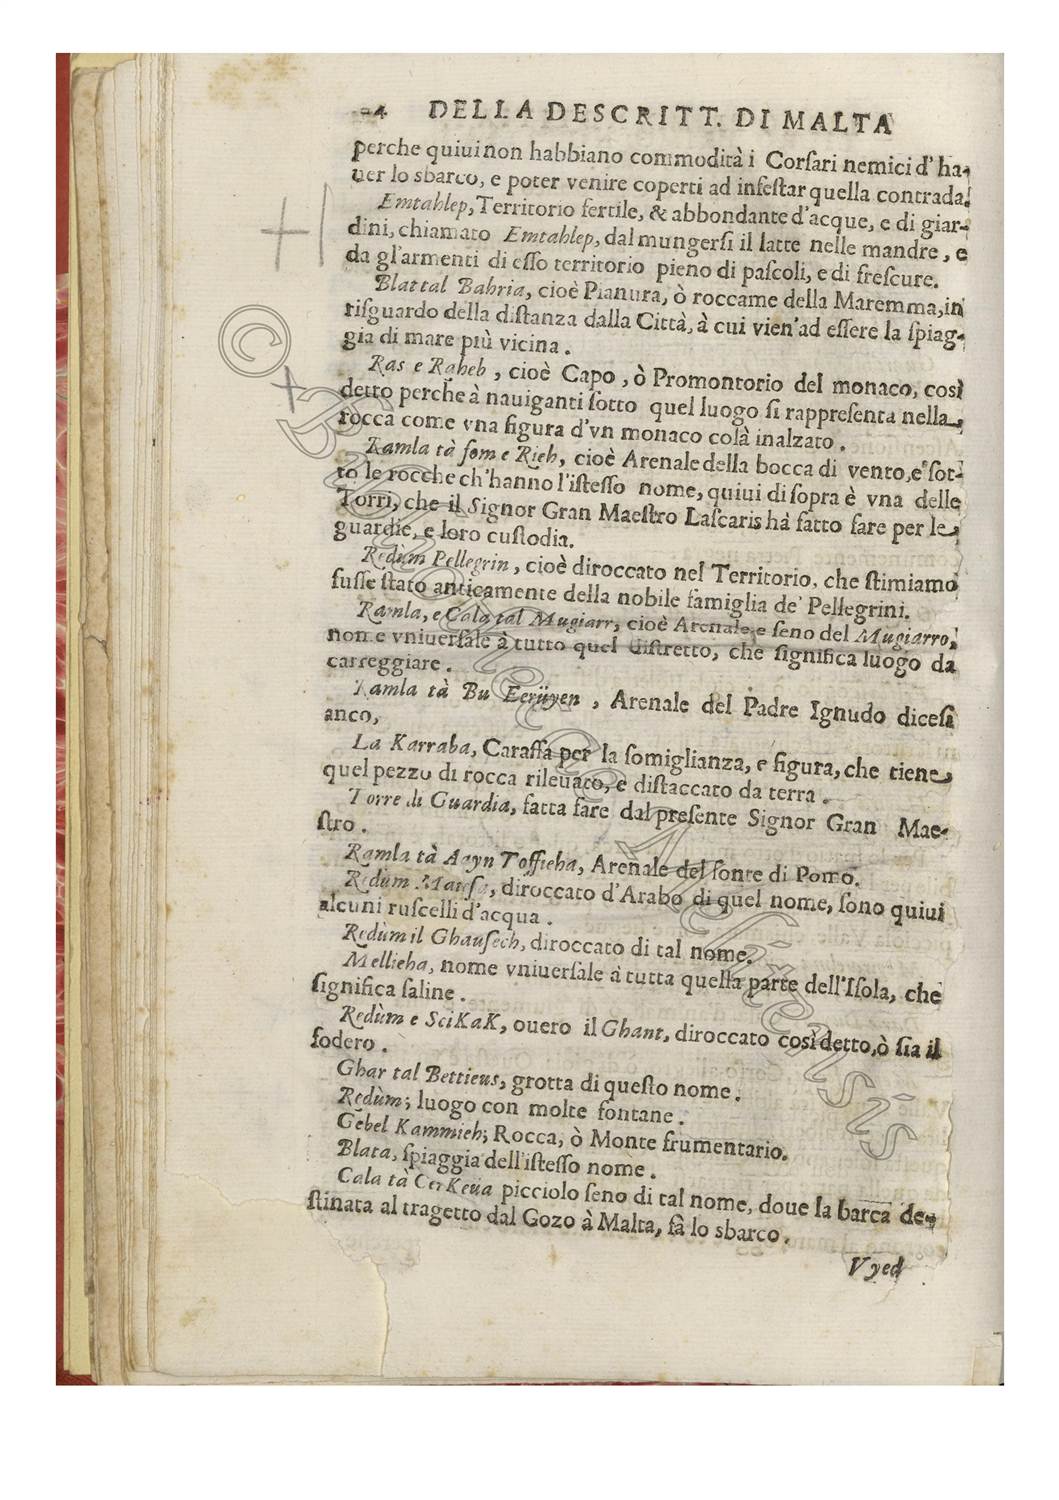 24 DELLA DESCRITT. DI MALTA
perche quiui non habbiano commodità i Corſari nemici d' ha-
uer lo sbarco, e poter venire coperti ad infeſtar quella contrada.
Emtahlep, Territorio fertile, & abbondante d'acque, e di giar-
dini, chiamato Emtahlep, dal mungerſi il latte nelle mandre, e
da gl'armenti di eſſo territorio pieno di paſcoli, e di freſcure.
Blat tal Bahria, cioè Pianura, ò roccame della Maremma, in
riſguardo della diſtanza dalla Città, à cui vien'ad eſſere la ſpiag-
gia di mare più vicina.
Ras e Raheb, cioè Capo, ò Promontorio del monaco, così
detto perche à nauiganti ſotto quel luogo ſi rappreſenta nella
rocca come vna figura d'vn monaco colà inalzato.
Ramla tà fom e Rieh, cioè Arenale della bocca di vento, e ſot-
to le rocche ch'hanno l'iſteſſo nome, quiui di ſopra è vna delle
Torri, che il Signor Gran Maeſtro Laſcaris hà fatto fare per le
guardie, e loro cuſtodia.
Redùm Pellegrin, cioè diroccato nel Territorio, che ſtimiamo
fuſſe ſtato anticamente della nobile famiglia de' Pellegrini.
Ramla, e Cala tal Mugiarr, cioè Arenale, e ſeno del Mugiarro,
nome vniuerſale à tutto quel diſtretto, che ſignifica luogo da
carreggiare.
Ramla tà Bu Eerüyen, Arenale del Padre Ignudo diceſi
anco,
La Karraba, Caraffa per la ſomiglianza, e figura, che tiene
quel pezzo di rocca rileuato, e diſtaccato da terra.
Torre di Guardia, fatta fare dal preſente Signor Gran Mae-
ſtro.
Ramla tà Aayn Toffieha, Arenale del fonte di Pomo.
Redùm Mateſa, diroccato d'Arabo di quel nome, ſono quiui
alcuni ruſcelli d'acqua.
Redùm il Ghauſech, diroccato di tal nome.
Mellieha, nome vniuerſale à tutta quella parte dell'Iſola, che
ſignifica ſaline.
Redùm e SciKaK, ouero il Ghant, diroccato così detto, ò ſia il
fodero.
Ghar tal Bettieus, grotta di queſto nome.
Redùm; luogo con molte fontane.
Gebel Kammieh; Rocca, ò Monte frumentario.
Blata, ſpiaggia dell'iſteſſo nome.
Cala tà CerKeüa picciolo ſeno di tal nome, doue la barca de-
ſtinata al tragetto dal Gozo à Malta, fà lo sbarco.
Vyed
© Bibliotheca Melitensis